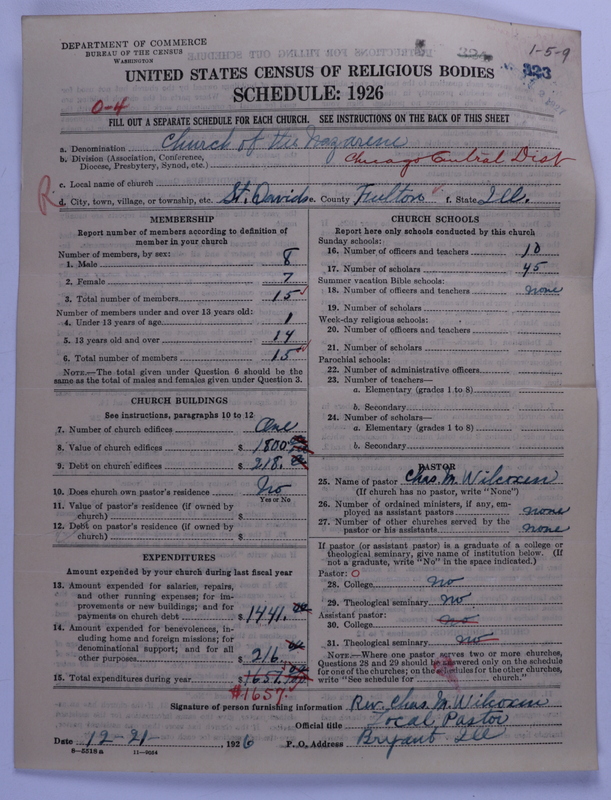 DEPARTMENT OF COMMERCE
BUREAU OF THE CENSUS
WASHINGTON
1-5-9
323
UNITED STATES CENSUS OF RELIGIOUS BODIES
SCHEDULE: 1926
0-4
FILL OUT A SEPARATE SCHEDULE FOR EACH CHURCH. SEE INSTRUCTIONS ON THE BACK OF THIS SHEET
a. Denomination Church of the Nazarene
b. Division (Association, Conference, Diocese, Presbytery, Synod, etc.) Chicago Central Dist
c. Local name of church
R.
d. City, town, village, or township, etc. St. Davids e. County Fulton f. State Ill.
MEMBERSHIP
Report number of members according to definition of member in your church
Number of members, by sex:
1. Male 8
2. Female 7
3. Total number of members 15
Number of members under and over 13 years old:
4. Under 13 years of age 1
5. 13 years old and over 14
6. Total number of members 15
NOTE.—The total given under Question 6 should be the same as the total of males and females given under Question 3.
CHURCH BUILDINGS
See instructions, paragraphs 10 to 12
7. Number of church edifices One
8. Value of church edifices $ 1800
9. Debt on church edifices $ 218.
10. Does church own pastor's residence No
Yes or No
11. Value of pastor's residence (if owned by church) $
12. Debt on pastor's residence (if owned by church) $
EXPENDITURES
Amount expended by your church during last fiscal year
13. Amount expended for salaries, repairs, and other running expenses; for improvements or new buildings; and for payments on church debt $ 1441.
14. Amount expended for benevolences, including home and foreign missions; for denominational support; and for all other purposes $ 216
15. Total expenditures during year $ 1657
$1657.
CHURCH SCHOOLS
Report here only schools conducted by this church
Sunday schools:
16. Number of officers and teachers 10
17. Number of scholars 45
Summer vacation Bible schools:
18. Number of officers and teachers none
19. Number of scholars
Week-day religious schools:
20. Number of officers and teachers
21. Number of scholars
Parochial schools:
22. Number of administrative officers
23. Number of teachers—
a. Elementary (grades 1 to 8)
b. Secondary
24. Number of scholars—
a. Elementary (grades 1 to 8)
b. Secondary
PASTOR
25. Name of pastor Chas. M. Wilcoxen
(If church has no pastor, write "None")
26. Number of ordained ministers, if any, employed as assistant pastors none
27. Number of other churches served by the pastor or his assistants none
If pastor (or assistant pastor) is a graduate of a college or theological seminary, give name of institution below. (If not a graduate, write "No" in the space indicated.)
Pastor: O
28. College no
29. Theological seminary No
Assistant pastor:
30. College no
31. Theological seminary no
NOTE.—Where one pastor serves two or more churches, Questions 28 and 29 should be answered only on the schedule for one of the churches; on the schedules for the other churches, write "See schedule for
Signature of person furnishing information Rev. Chas. M. Wilcoxen
Official title Local Pastor
Date 12-21- 1926 P. O. Address Bryant Ill
8—5518 a 11—9034